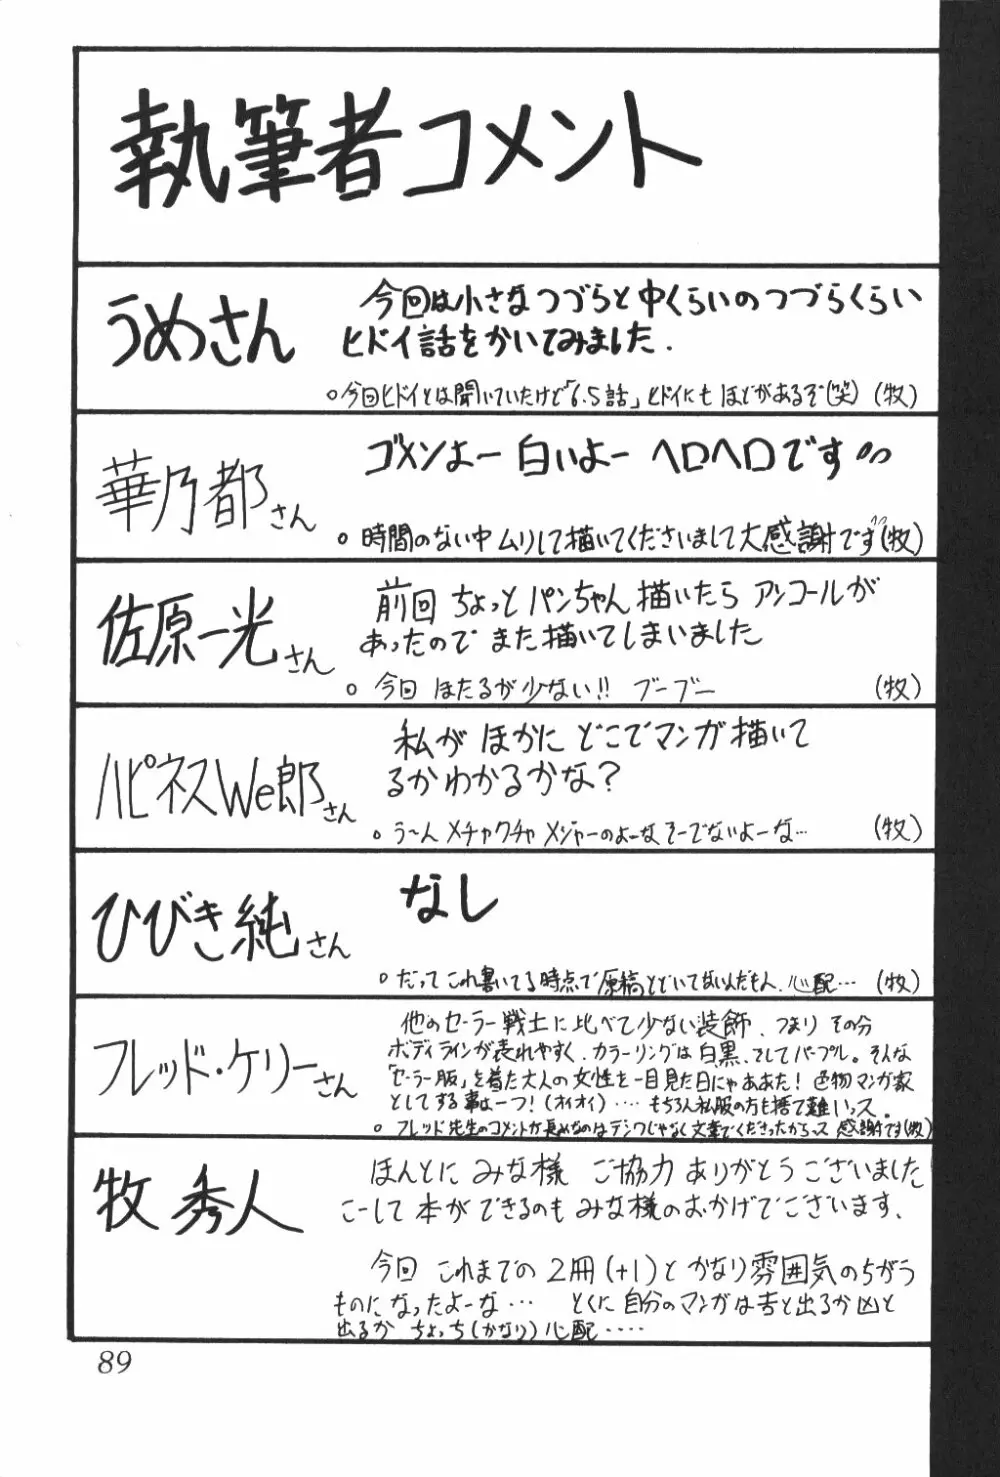 執筆者コメント
うめさん
今回は小さなつづらと中くらいのつづらくらい
ヒドイ話をかいてみました.
○今回ヒドイとは聞いていたけど「6.5話」ヒドイにもほどがあるぞ(笑) (牧)
華乃都さん
ゴメンよー 白いよー ヘロヘロです
○時間のない中ムリして描いてくださいまして大感謝です(牧)
佐原一光さん
前回ちょっとパンちゃん描いたら アンコールが
あったので また描いてしまいました
○今回 ほたるが少ない!! ブーブー (牧)
ハピネスWe郎さん
私が ほかに どこでマンガ描いて
るかわかるかな?
○う〜ん メチャクチャ メジャーのよーな そーでないよーな… (牧)
ひびき純さん
なし
○だってこれ書いてる時点で原稿とどいてないんだもん、心配… (牧)
フレッド・ケリーさん
他のセーラー戦士に比べて少ない装飾、つまり その分
ボディラインが表れやすく、カラーリングは白黒、そしてパープル。そんな
「セーラー服」を着た大人の女性を一目見た日にゃああた! 色物マンガ家
としてする事は一つ!(オイオイ)‥‥もちろん私服の方も捨て難いっス。
○フレッド先生のコメントが長めなのはデンワじゃなく文章でくださったからっス 感謝です(牧)
牧 秀人
ほんとに みな様 ご協力 ありがとうございました
こーして本ができるのもみな様のおかげでございます、
今回 これまでの2冊(+1)と かなり雰囲気のちがう
ものになったよーな… とくに自分のマンガは吉と出るか凶と
出るか ちょっち(かなり)心配‥‥
89